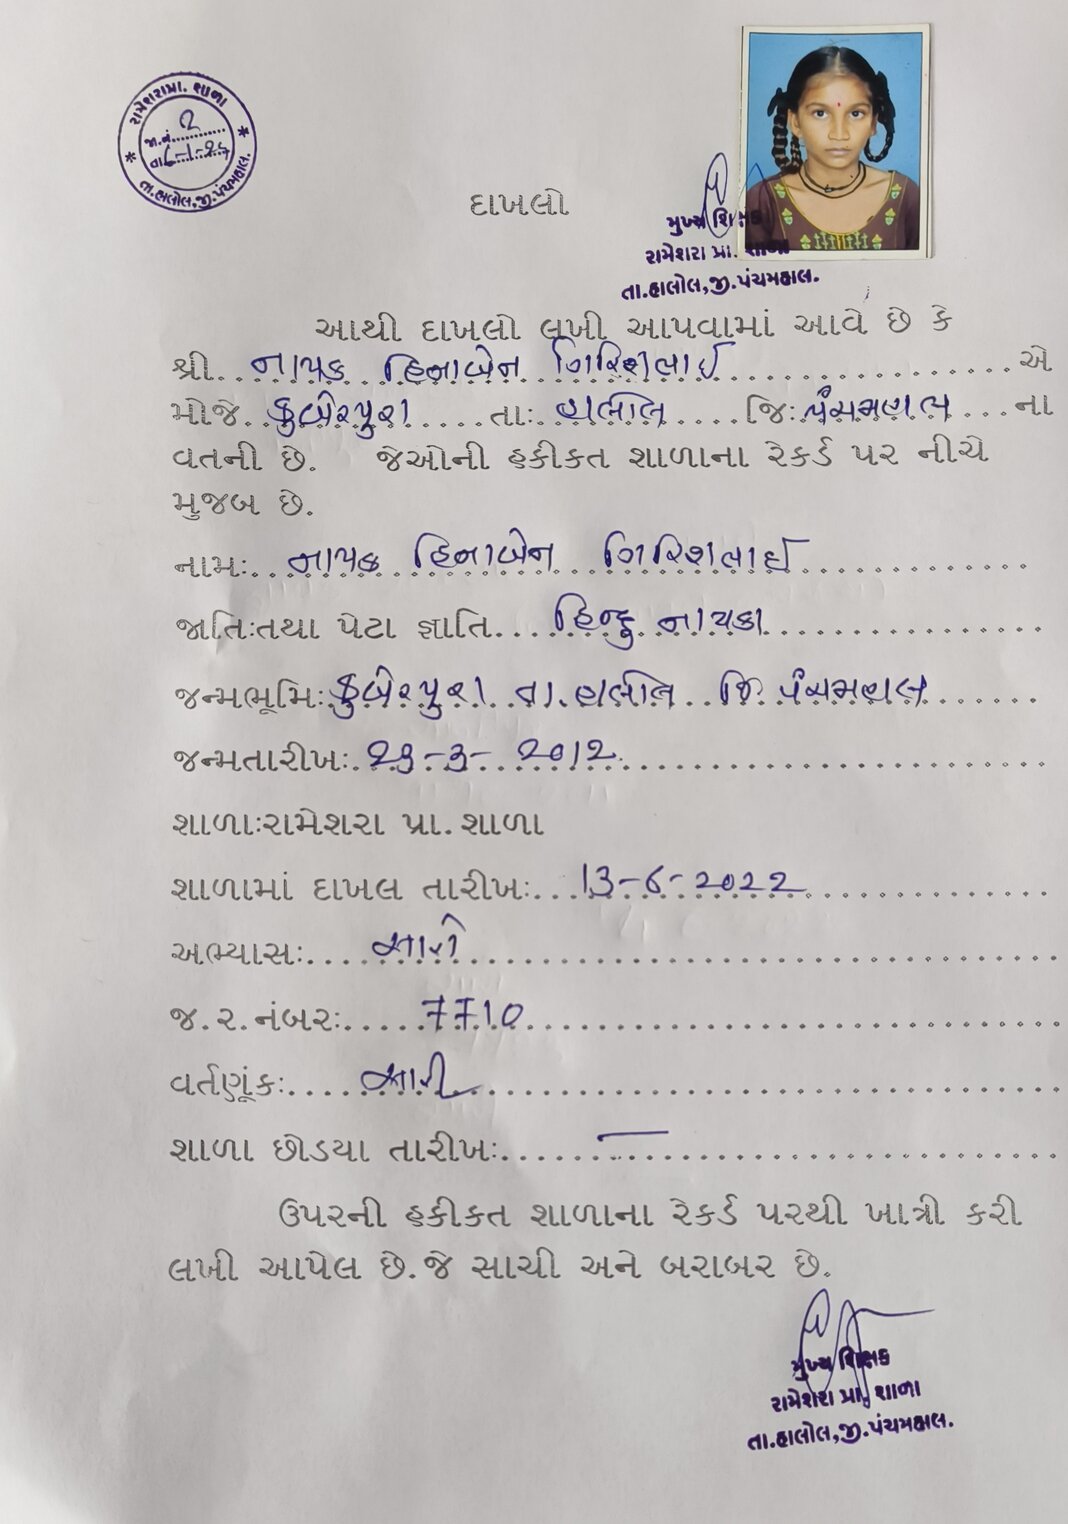 રામેશરા પ્રા. શાળા
જા.નં. ૨
તા.હાલોલ,જી.પંચમહાલ.
દાખલો
મુખ્ય શિક્ષક
રામેશરા પ્રા. શાળા
તા.હાલોલ,જી.પંચમહાલ.
આથી દાખલો લખી આપવામાં આવે છે કે
શ્રી. નાયક હિનાબેન ગિરિશભાઈ એ
મોજે. કુબેરપુરા તાઃ હાલોલ જિઃ પંચમહાલ ના
વતની છે. જેઓની હકીકત શાળાના રેકર્ડ પર નીચે
મુજબ છે.
નામઃ નાયક હિનાબેન ગિરિશભાઈ
જાતિઃતથા પેટા જ્ઞાતિ. હિન્દુ નાયકા
જન્મભૂમિઃ કુબેરપુરા તા. હાલોલ જિ. પંચમહાલ
જન્મતારીખઃ ૨૩-૩-૨૦૧૨
શાળાઃરામેશરા પ્રા.શાળા
શાળામાં દાખલ તારીખઃ 13-6-2022
અભ્યાસઃ સારો
જ.ર.નંબરઃ 7710
વર્તણૂંકઃ સારી
શાળા છોડયા તારીખઃ —
ઉપરની હકીકત શાળાના રેકર્ડ પરથી ખાત્રી કરી
લખી આપેલ છે.જે સાચી અને બરાબર છે.
મુખ્ય શિક્ષક
રામેશરા પ્રા. શાળા
તા.હાલોલ,જી.પંચમહાલ.